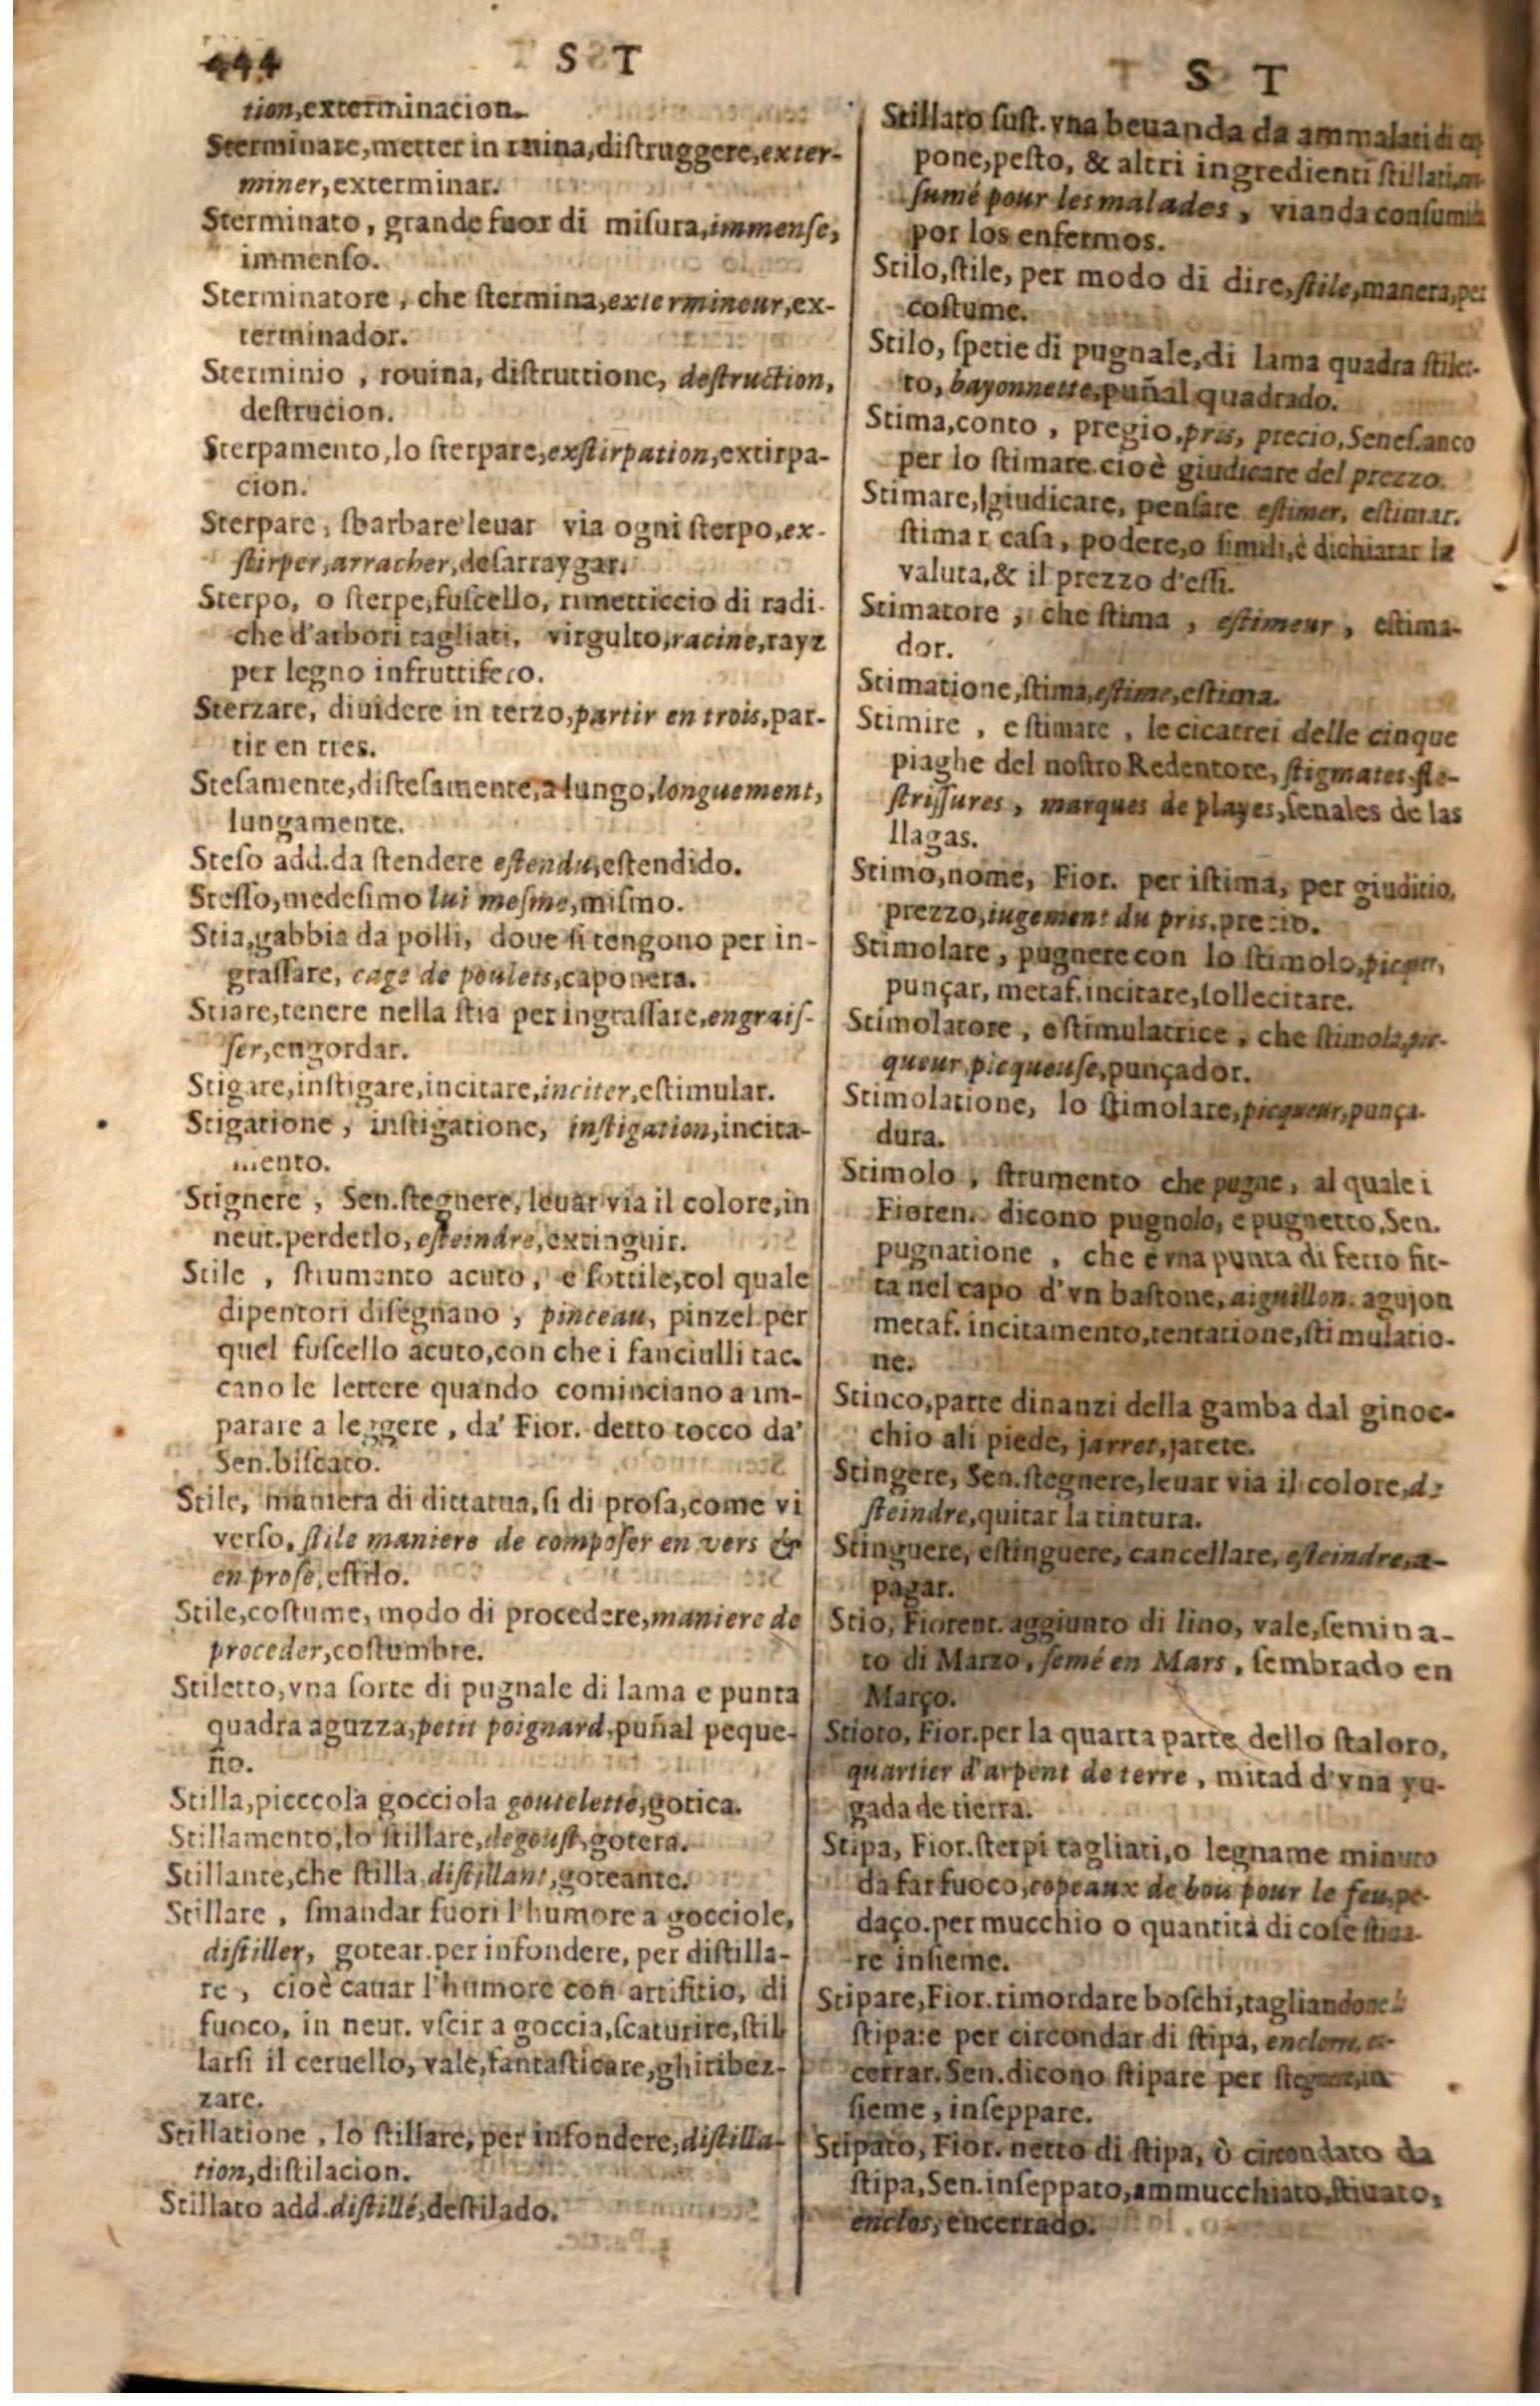 444 S T
tion,exterminacion.
Sterminare,metter in ruina,diſtruggere,exter-
miner,exterminar.
Sterminato, grande fuor di miſura,immenſe,
immenſo.
Sterminatore, che ſtermina,extermineur,ex-
terminador.
Sterminio, rouina, diſtruttione, deſtruction,
deſtrucion.
Sterpamento,lo ſterpare,exſtirpation,extirpa-
cion.
Sterpare, ſbarbare leuar via ogni ſterpo,ex-
ſtirper,arracher,deſarraygar.
Sterpo, o ſterpe,fuſcello, rimetticcio di radi-
che d'arbori tagliati, virgulto,racine,rayz
per legno infruttifero.
Sterzare, diuidere in terzo,partir en trois,par-
tir en tres.
Steſamente,diſteſamente,a lungo,longuement,
lungamente.
Steſo add.da ſtendere eſtendu,eſtendido.
Steſſo,medeſimo lui meſme,miſmo.
Stia,gabbia da polli, doue ſi tengono per in-
graſſare, cage de poulets,caponera.
Stiare,tenere nella ſtia per ingraſſare,engraiſ-
ſer,engordar.
Stigare,inſtigare,incitare,inciter,eſtimular.
Stigatione, inſtigatione, inſtigation,incita-
mento.
Stignere, Sen.ſtegnere, leuar via il colore,in
neut.perderlo, eſteindre,extinguir.
Stile, ſtrumento acuto, e ſottile,col quale
dipentori diſegnano, pinceau, pinzel.per
quel fuſcello acuto,con che i fanciulli tac-
cano le lettere quando cominciano a im-
parare a leggere, da' Fior. detto tocco da'
Sen.biſcaro.
Stile, maniera di dittatua,ſi di proſa,come vi
verſo, ſtile maniere de compoſer en vers &
en proſe,eſtilo.
Stile,coſtume, modo di procedere,maniere de
proceder,coſtumbre.
Stiletto,vna ſorte di pugnale di lama e punta
quadra aguzza,petit poignard,puñal peque-
ño.
Stilla,picccola gocciola goutelette,gotica.
Stillamento,lo ſtillare,degouſt,gotera.
Stillante,che ſtilla,diſtillant,goteante.
Stillare, ſmandar fuori l'humore a gocciole,
diſtiller, gotear.per infondere, per diſtilla-
re, cioè cauar l'humore con artifitio, di
fuoco, in neut. vſcir a goccia,ſcaturire,ſtil
larſi il ceruello, vale,fantaſticare,ghiribez-
zare.
Stillatione, lo ſtillare, per infondere,diſtilla-
tion,diſtilacion.
Stillato add.diſtillé,deſtilado.
S T
Stillato ſuſt. vna beuanda da ammalati di ca
pone,peſto, & altri ingredienti ſtillati,
ſumé pour les malades, vianda conſumida
por los enfermos.
Stilo,ſtile, per modo di dire,ſtile,manera,per
coſtume.
Stilo, ſpetie di pugnale,di lama quadra ſtilet-
to, bayonnette,puñal quadrado.
Stima,conto, pregio,pris, precio,Seneſ.anco
per lo ſtimare.cioè giudicare del prezzo.
Stimare,giudicare, penſare eſtimer, eſtimar.
ſtimar caſa, podere,o ſimili,è dichiarar la
valuta,& il prezzo d'eſſi.
Stimatore, che ſtima, eſtimeur, eſtima-
dor.
Stimatione,ſtima,eſtime,eſtima.
Stimire, e ſtimate, le cicatrei delle cinque
piaghe del noſtro Redentore, ſtigmates fle-
ſtriſſures, marques de playes,ſenales de las
llagas.
Stimo,nome, Fior. per iſtima, per giuditio,
prezzo,iugement du pris,precio.
Stimolare, pugnere con lo ſtimolo,picquer,
punçar, metaf.incitare,ſollecitare.
Stimolatore, e ſtimulatrice, che ſtimola,pic-
queur,picqueuſe,punçador.
Stimolatione, lo ſtimolare,picqueur,punça-
dura.
Stimolo, ſtrumento che pugne, al quale i
Fioren. dicono pugnolo, e pugnetto,Sen.
pugnatione, che è vna punta di ferro fit-
ta nel capo d'vn baſtone, aiguillon. agujon
metaf. incitamento,tentatione,ſtimulatio-
ne.
Stinco,parte dinanzi della gamba dal ginoc-
chio ali piede, jarret,jarete.
Stingere, Sen.ſtegnere,leuar via il colore,de
ſteindre,quitar la tintura.
Stinguere, eſtinguere, cancellare, eſteindre,a-
pagar.
Stio, Fiorent.aggiunto di lino, vale,ſemina-
to di Marzo, ſemé en Mars, ſembrado en
Março.
Stioro, Fior.per la quarta parte dello ſtaloro,
quartier d'arpent de terre, mitad d'vna yu-
gada de tierra.
Stipa, Fior.ſterpi tagliati,o legname minuto
da far fuoco,copeaux de bois pour le feu,pe-
daço.per mucchio o quantità di coſe ſtiua-
re inſieme.
Stipare,Fior.rimordare boſchi,tagliandone
ſtipa:e per circondar di ſtipa, enclorre,en-
cerrar.Sen.dicono ſtipare per
ſieme, inſeppare.
Stipato, Fior. netto di ſtipa, ò circondato da
ſtipa,Sen.inſeppato,ammucchiato,ſtiuato,
enclos,encerrado.